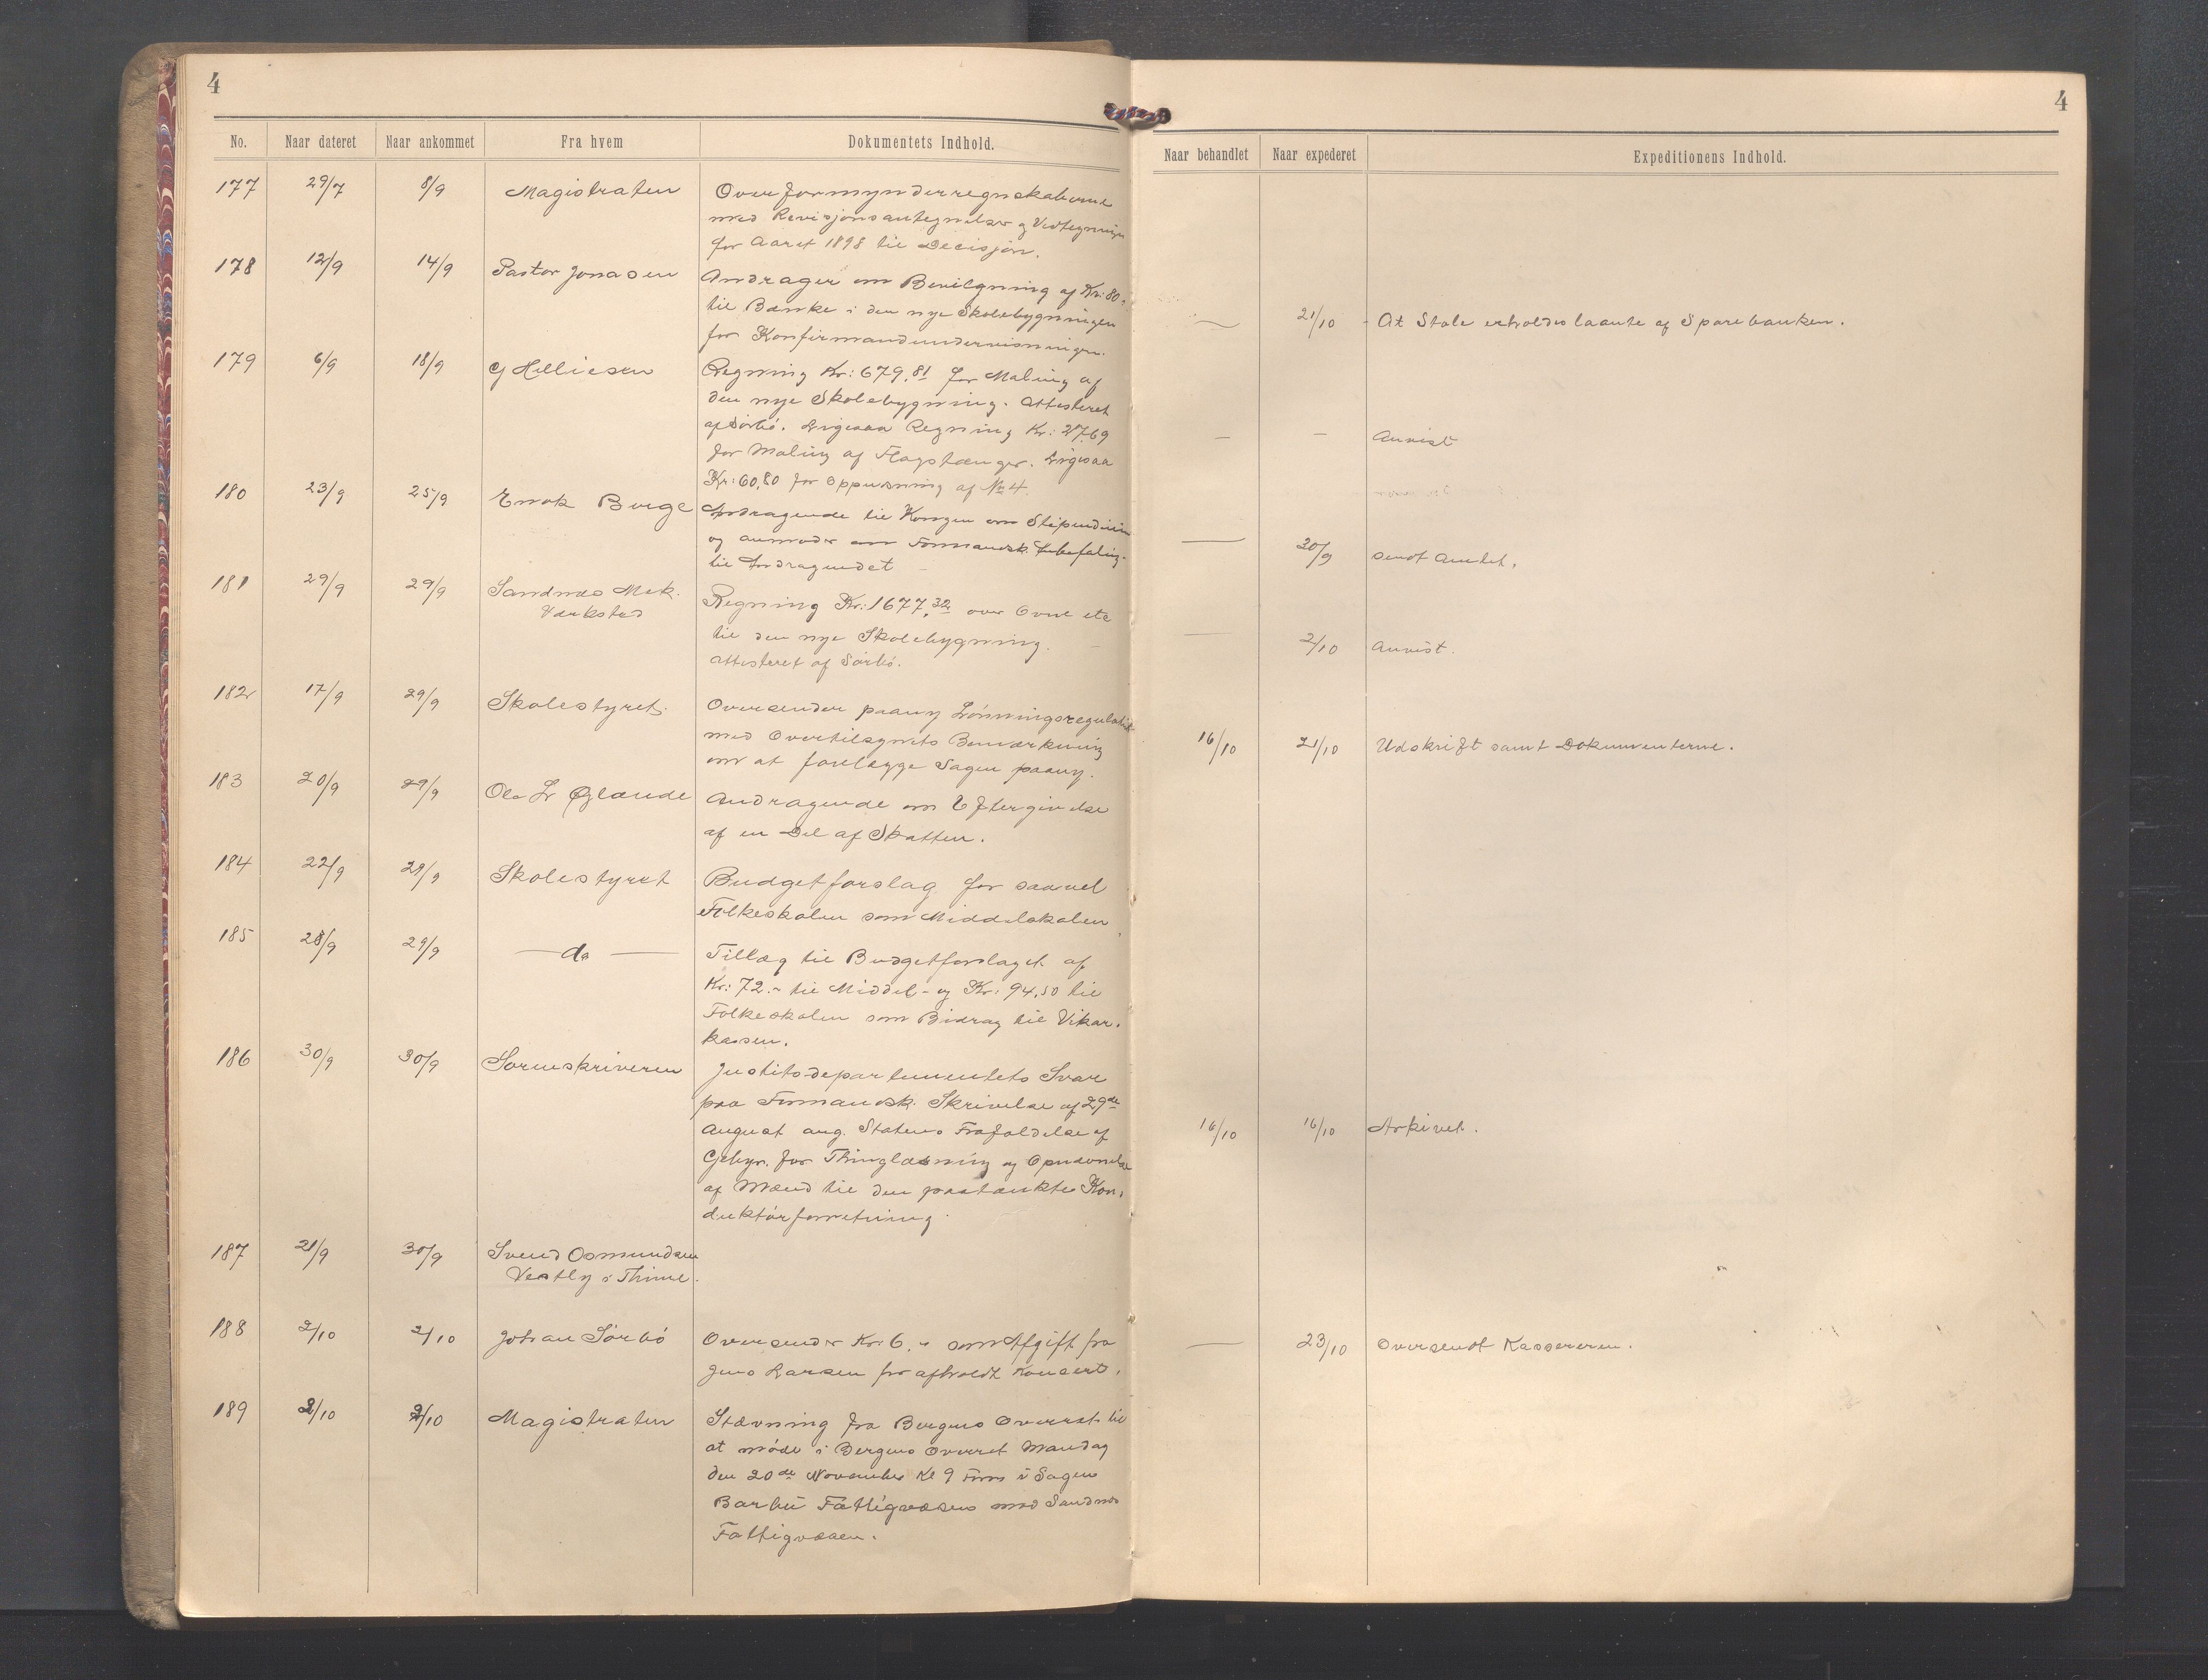 4
4
No. Naar dateret Naar ankommet Fra hvem Dokumentets Indhold.
Naar behandlet Naar expederet Expeditionens Indhold.
177 29/7 8/9 Magistraten Overformynderregnskaberne
med Revisjonsantegnelser og Vedtegninger
for Aaret 1898 til Decisjon.
178 12/9 14/9 Pastor Jonasen Andrager om Bevilgning af Kr: 80.-
til Bænke i den nye Skolebygningen
21/10 - At Stole erholdes laante af Sparebanken.
for Konfirmandundervisningen.
179 6/9 18/9 G Helliesen Regning Kr: 679.81 for Maling af
den nye Skolebygning. Attesteret
af Sörbö. Ligesaa Regning Kr: 27.69
— — Anvist
for Maling af Flagstænger. Ligesaa
Kr: 60.80 for Oppusning af № 4.
180 23/9 25/9 Enok Berge Andragende til Kongen om Stipendium
og anmoder om Formandsk. Anbefaling
— 30/9 sendt Amtet.
til Andragendet
181 29/9 29/9 Sandnæs Mek.
Værksted
Regning Kr: 1677.32 over Ovne etc
til den nye Skolebygning.
attesteret af Sörbö.
— 2/10 Anvist.
182 17/9 29/9 Skolestyret Oversender paany Lönningsregulativ
med Overtilsynets Bemærkning
om at forelægge Sagen paany.
16/10 21/10 Udskrift samt Dokumenterne.
183 20/9 29/9 Ole L Öglænde Andragende om Eftergivelse
af en Del af Skatten.
184 22/9 29/9 Skolestyret Budgetforslag for saavel
Folkeskolen som Middelskolen.
185 28/9 29/9 — do — Tillæg til Budgetforslaget af
Kr: 72.- til Middel- og Kr: 94.50 til
Folkeskolen som Bidrag til Vikar-
kassen.
186 30/9 30/9 Sorenskriveren Justitsdepartementets Svar
paa Formandsk. Skrivelse af 29de
August ang. Statens Frafaldelse af
16/10 16/10 Arkivet.
Gebyr. for Thinglæsning og Opnævnelse
af Mænd til den paatænkte Kon-
duktörforretning.
187 21/9 30/9 Svend Osmundsen
Vestly i Thime.
188 2/10 2/10 Johan Sörbö Oversender Kr: 6.- som Afgift fra
Jens Larsen for afholdt Koncert.
— 23/10 Oversendt Kassereren.
189 2/10 2/10 Magistraten Stævning fra Bergens Overret til
at möde i Bergens Overret Mandag
den 20de November Kl 9 Form i Sagen
Barbu Fattigvæsen mod Sandnæs
Fattigvæsen.